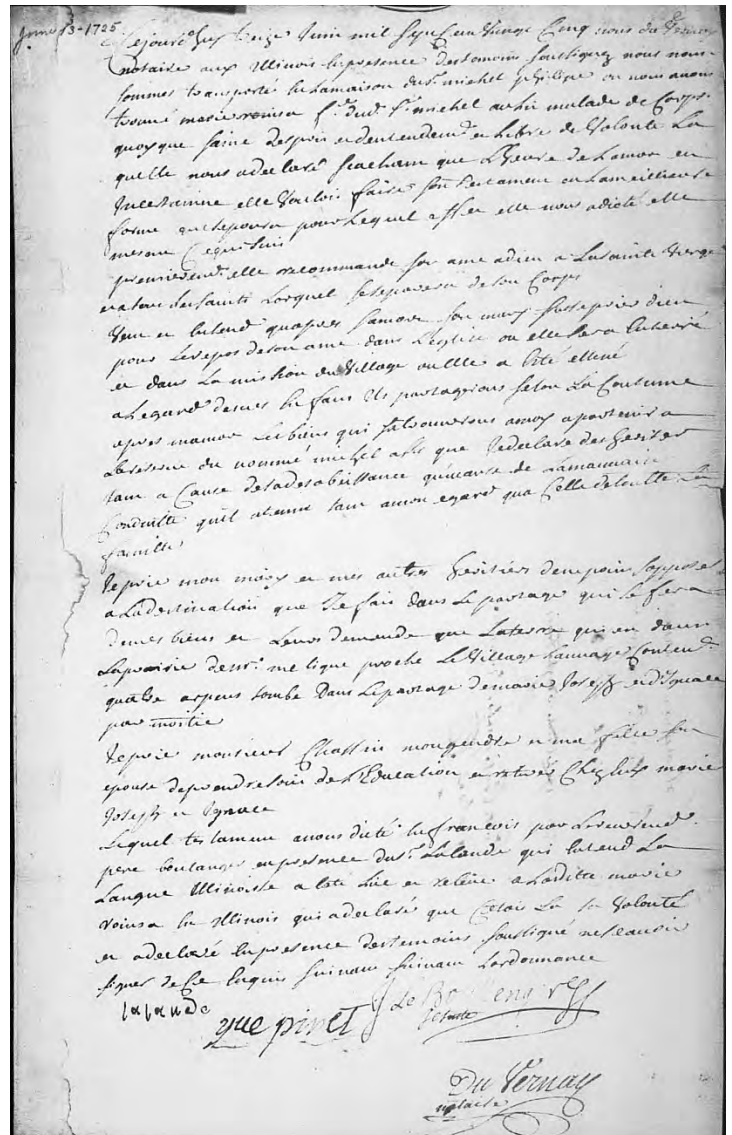 June 13-1725
Cejourdhuy treize Juin mil sept cent vingt Cinq nous du Vernay
notaire aux Illinois en presence des temoins soussignez nous nous
sommes transporté en la maison du Sr. michel philipe ou nous avons
trouvé marie rouensa f.e dud. S.r michel au lit malade de Corps
quoyque saine desprit et dentendem.t et libre de Volonté La
quelle nous a declaré scacham que Lheure de Lamort en
Incertainne elle Vouloit faire son testament en La meillieure
forme que se poura pour Lequel effet elle nous a dicté elle
mesme Ce qui suit
premierem.t elle recommande son ame a dieu a La Sainte Vierge
et a tous Les saints Lorsquel se separera de son Corps
Veut et Entend quapres sa mort son mary fasse prier dieu
pour Le repos de son ame dans L'Eglise ou elle sera Enterré
et dans La mission du Village ou Elle a Eté
a Legard de mes Enfans ils partagerons selon La Coutume
apres ma mort Les biens qui se trouverons amoy apartenir a
La reserve du nommé michel que Je declare desheriter
tam a Cause de sa desobeissance que de La mauvaise
Conduitte quil a tenue tam a mon egard qua Celle de toutte La
famille
Je prie mon mary et mes autres heritiers de ne point sopposer
a La destination que Je fais dans Le partage qui se fera
de mes biens et Leurs demande que La terre qui est dans
La prairie de mr. metique proche Le Village Sauvage Conten.t
quattre arpens tombe Dans Le partage de marie Joseph et d'Ignace
par moitie
Je prie monsieur Chassin mon gendre et ma fille son
epouse de prendre soin de L'Education et retirer Chez Eux marie
Joseph et Ignace
Lequel testament a nous dicté En francois par Le reverend
pere boulanger en presence du S.r Lalande qui Entend La
Langue Illinoise a Eté Lüe et relüe a Laditte marie
roinsa En Illinois qui a declaré que Cetait La sa Volonté
et a declaré En presence des temoins soussigné ne scavoir
signer de Ce Enquis suivant suivant Lordonnance
lalande
Jaque pinet
J Le Boullenger
Jesuite
Du Vernay
notaire